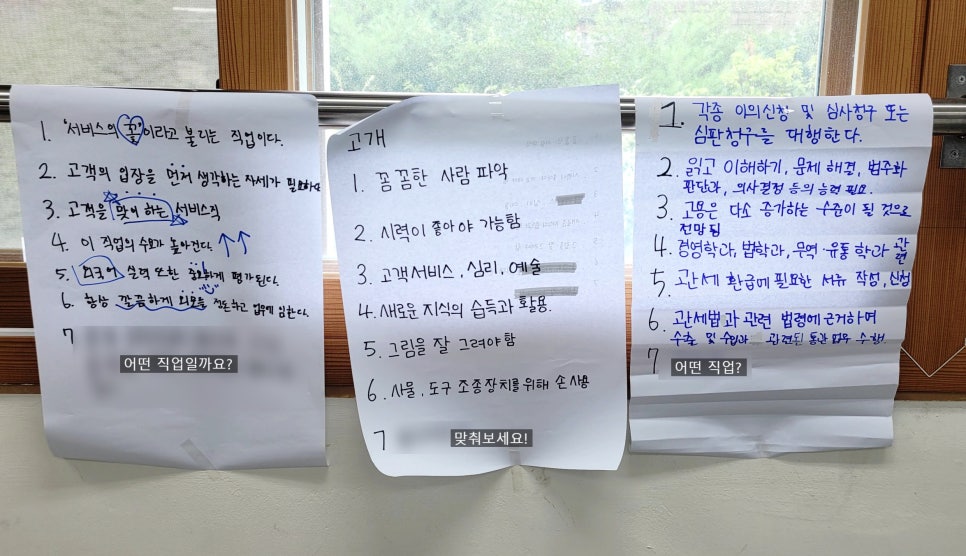 1. "서비스의 꽃"이라고 불리는 직업이다.
2. 고객의 입장을 먼저 생각하는 자세가 필요하다
3. 고객을 맞이 하는 서비스직
4. 이 직업의 수요가 높아진다. ↑↑
5. 외국어 실력 또한 중요하게 평가된다.
6. 항상 깔끔하게 외모를 정돈하고 업무에 임한다.
7
어떤 직업일까요?
고개
1. 꼼꼼한 사람 파악
2. 시력이 좋아야 가능함
3. 고객서비스, 심리, 예술
4. 새로운 지식의 습득과 활용.
5. 그림을 잘 그려야함
6. 사물, 도구 조종장치를 위해 손 사용
7
맞춰보세요!
1. 각종 이의신청 및 심사청구 또는
심판청구를 대행한다.
2. 읽고 이해하기, 문제 해결, 범주화
판단과, 의사결정 등의 능력 필요.
3. 고용은 다소 증가하는 수준이 될 것으로
전망됨
4. 경영학과, 법학과, 무역·유통 학과 관련
5. 관세 환급에 필요한 서류 작성, 신청
6. 관세법과 관련 법령에 근거하여
수출 및 수입과 관련된 통관업무 수행.
7
어떤 직업?